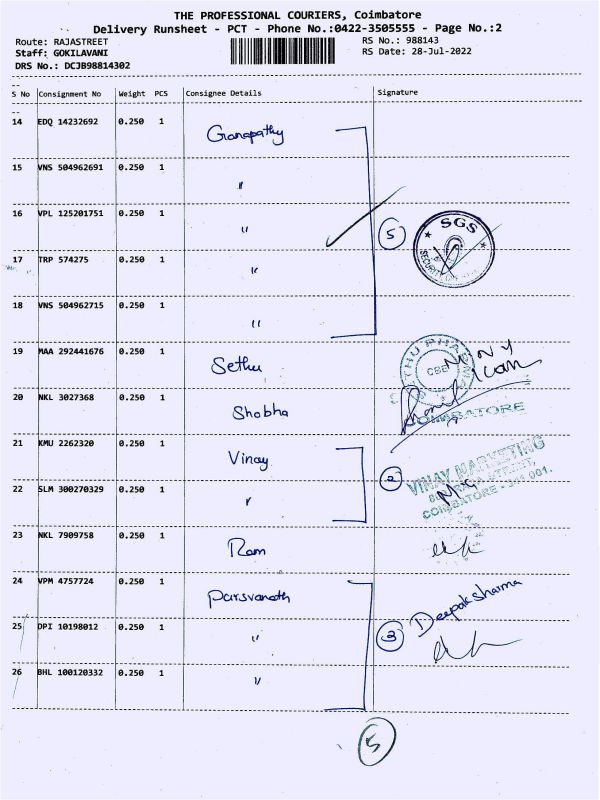 THE PROFESSIONAL COURIERS, Coimbatore
Delivery Runsheet - PCT - Phone No.:0422-3505555 - Page No.:2
Route: RAJASTREET RS No.: 988143
Staff: GOKILAVANI RS Date: 28-Jul-2022
DRS No.: DCJB98814302
S No Consignment No Weight PCS Consignee Details Signature
14 EDQ 14232692 0.250 1 Ganapathy
15 VNS 504962691 0.250 1 "
16 VPL 125201751 0.250 1 " 5 SGS SECURITY
17 TRP 574275 0.250 1 "
18 VNS 504962715 0.250 1 "
19 MAA 292441676 0.250 1 Sethu CBE
20 NKL 3027368 0.250 1 Shobha COIMBATORE
21 KMU 2262320 0.250 1 Vinay VINAY MARKETING
22 SLM 300270329 0.250 1 " 2 COIMBATORE - 641 001.
23 NKL 7909758 0.250 1 Ram
24 VPM 4757724 0.250 1 Parsvanath Deepak sharma
25 DPI 10198012 0.250 1 " 3
26 BHL 100120332 0.250 1 "
5